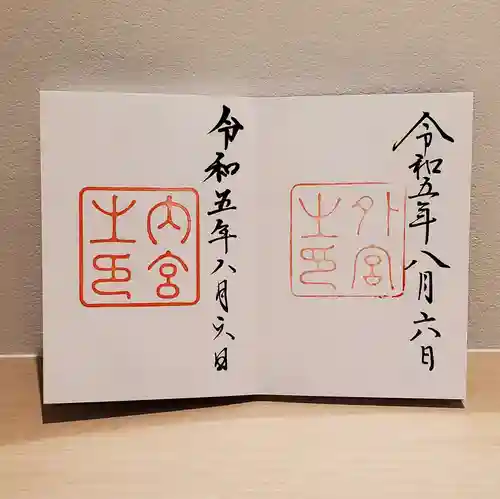 令和五年八月六日
外宮
之印
令和五年八月六日
内宮
之印